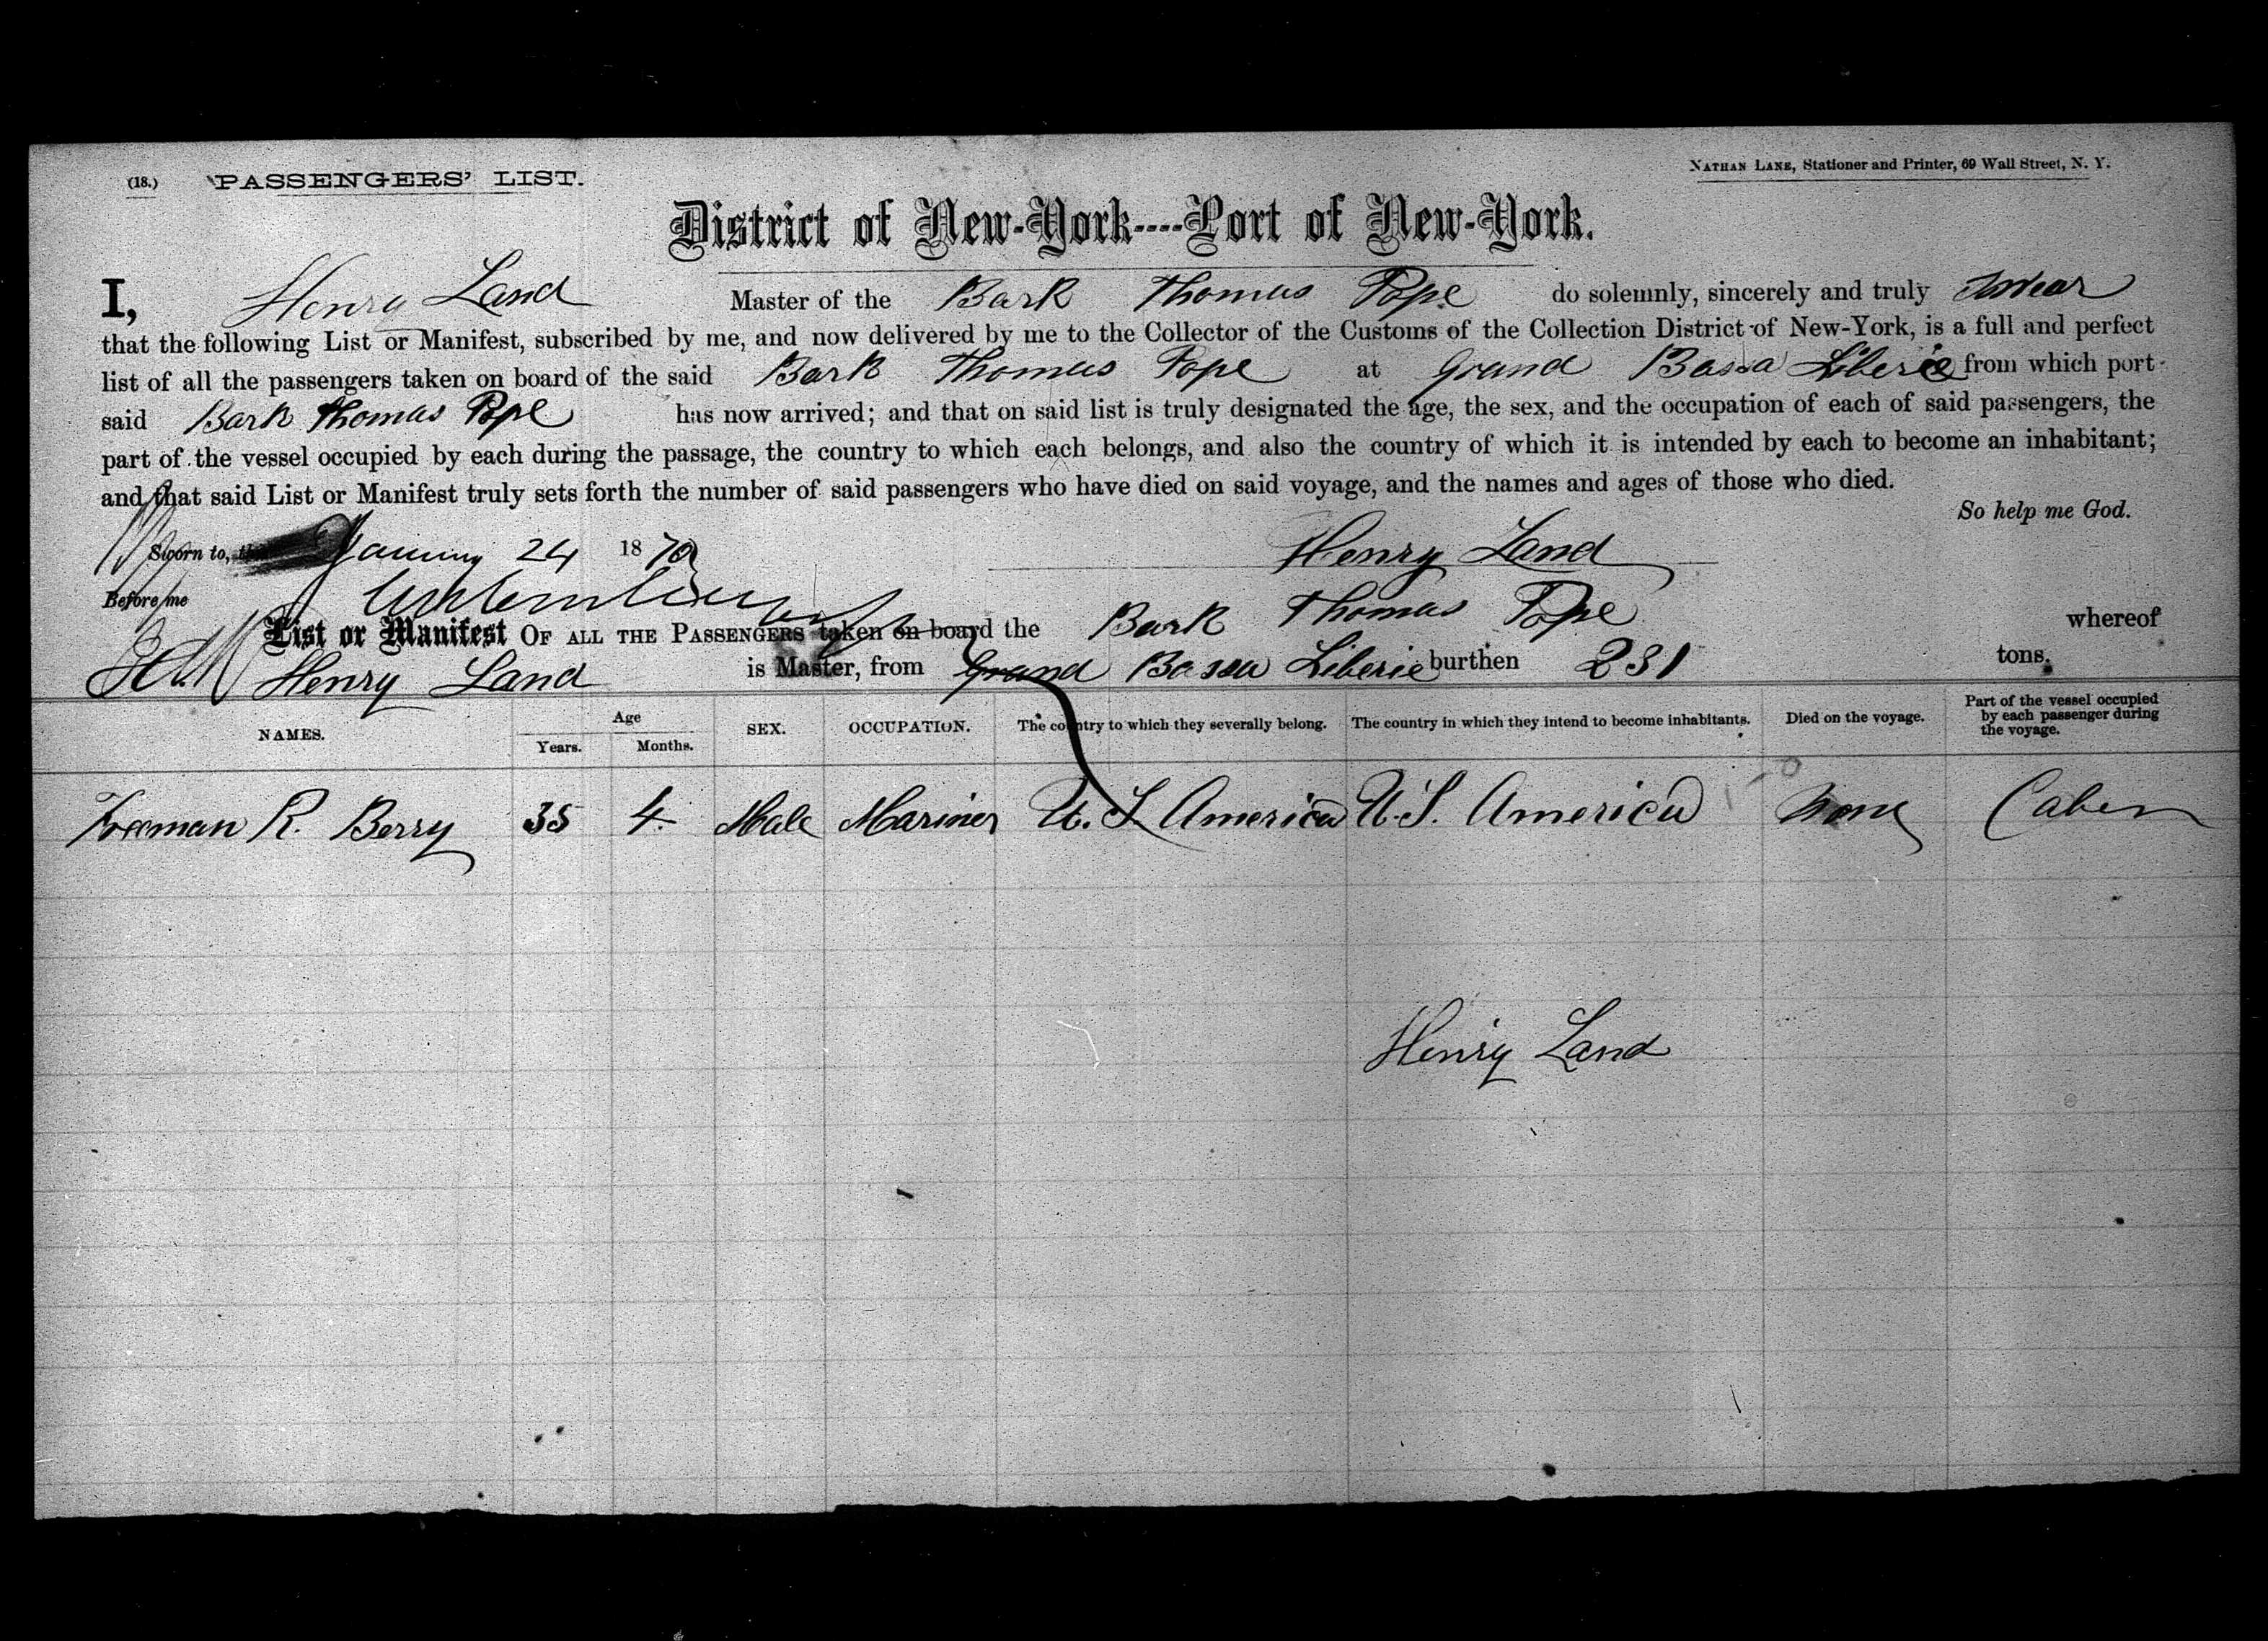 (18.) PASSENGERS' LIST.
NATHAN LANE, Stationer and Printer, 69 Wall Street, N. Y.
District of New-York----Port of New-York.
I, Henry Land Master of the Bark Thomas Pope do solemnly, sincerely and truly swear
that the following List or Manifest, subscribed by me, and now delivered by me to the Collector of the Customs of the Collection District of New-York, is a full and perfect
list of all the passengers taken on board of the said Bark Thomas Pope at Grand Bassa Liberie from which port
said Bark Thomas Pope has now arrived; and that on said list is truly designated the age, the sex, and the occupation of each of said passengers, the
part of the vessel occupied by each during the passage, the country to which each belongs, and also the country of which it is intended by each to become an inhabitant;
and that said List or Manifest truly sets forth the number of said passengers who have died on said voyage, and the names and ages of those who died.
So help me God.
Sworn to, January 24 1870 Henry Land
Before me
List or Manifest OF ALL THE PASSENGERS taken on board the Bark Thomas Pope whereof
Henry Land is Master, from Grand Bassa Liberie burthen 231 tons.
NAMES. Age Years. Months. SEX. OCCUPATION. The country to which they severally belong. The country in which they intend to become inhabitants. Died on the voyage. Part of the vessel occupied by each passenger during the voyage.
Freeman R. Berry 35 4 Male Mariner U. S. America U. S. America None Caben
Henry Land